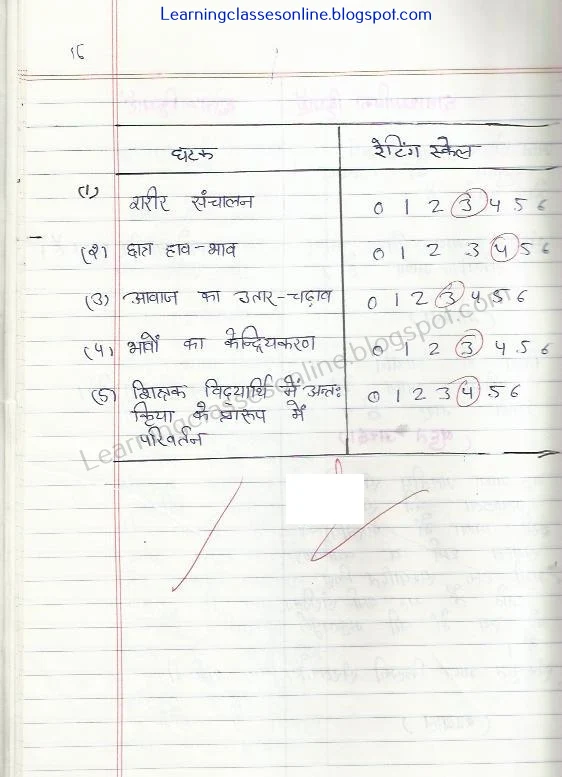 Learningclassesonline.blogspot.com
16
घटक रेटिंग स्केल
(1) शरीर संचालन 0 1 2 3 4 5 6
(२) द्वारा हाव-भाव 0 1 2 3 4 5 6
(3) आवाज का उतार-चढ़ाव 0 1 2 3 4 5 6
(4) भावों का केन्द्रियकरण 0 1 2 3 4 5 6
(5) शिक्षक विद्यार्थि में अन्तः 0 1 2 3 4 5 6
क्रिया के स्वरूप में
परिवर्तन
Learningclassesonline.blogspot.com